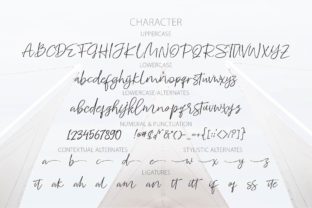 CHARACTER
UPPERCASE
ABCDEFGHIJKLMNOPQRSTUVWXYZ
LOWERCASE
abcdefghijklmnopqrstuvwxyz
LOWERCASE ALTERNATES
abcdefghijklmnopqrstuvwxyz
NUMERAL & PUNCTUATION
1234567890
CONTEXTUAL ALTERNATES STYLISTIC ALTERNATES
a b c e r s v w x y z
LIGATURES
it ak ah am an tt itt if of ss ite